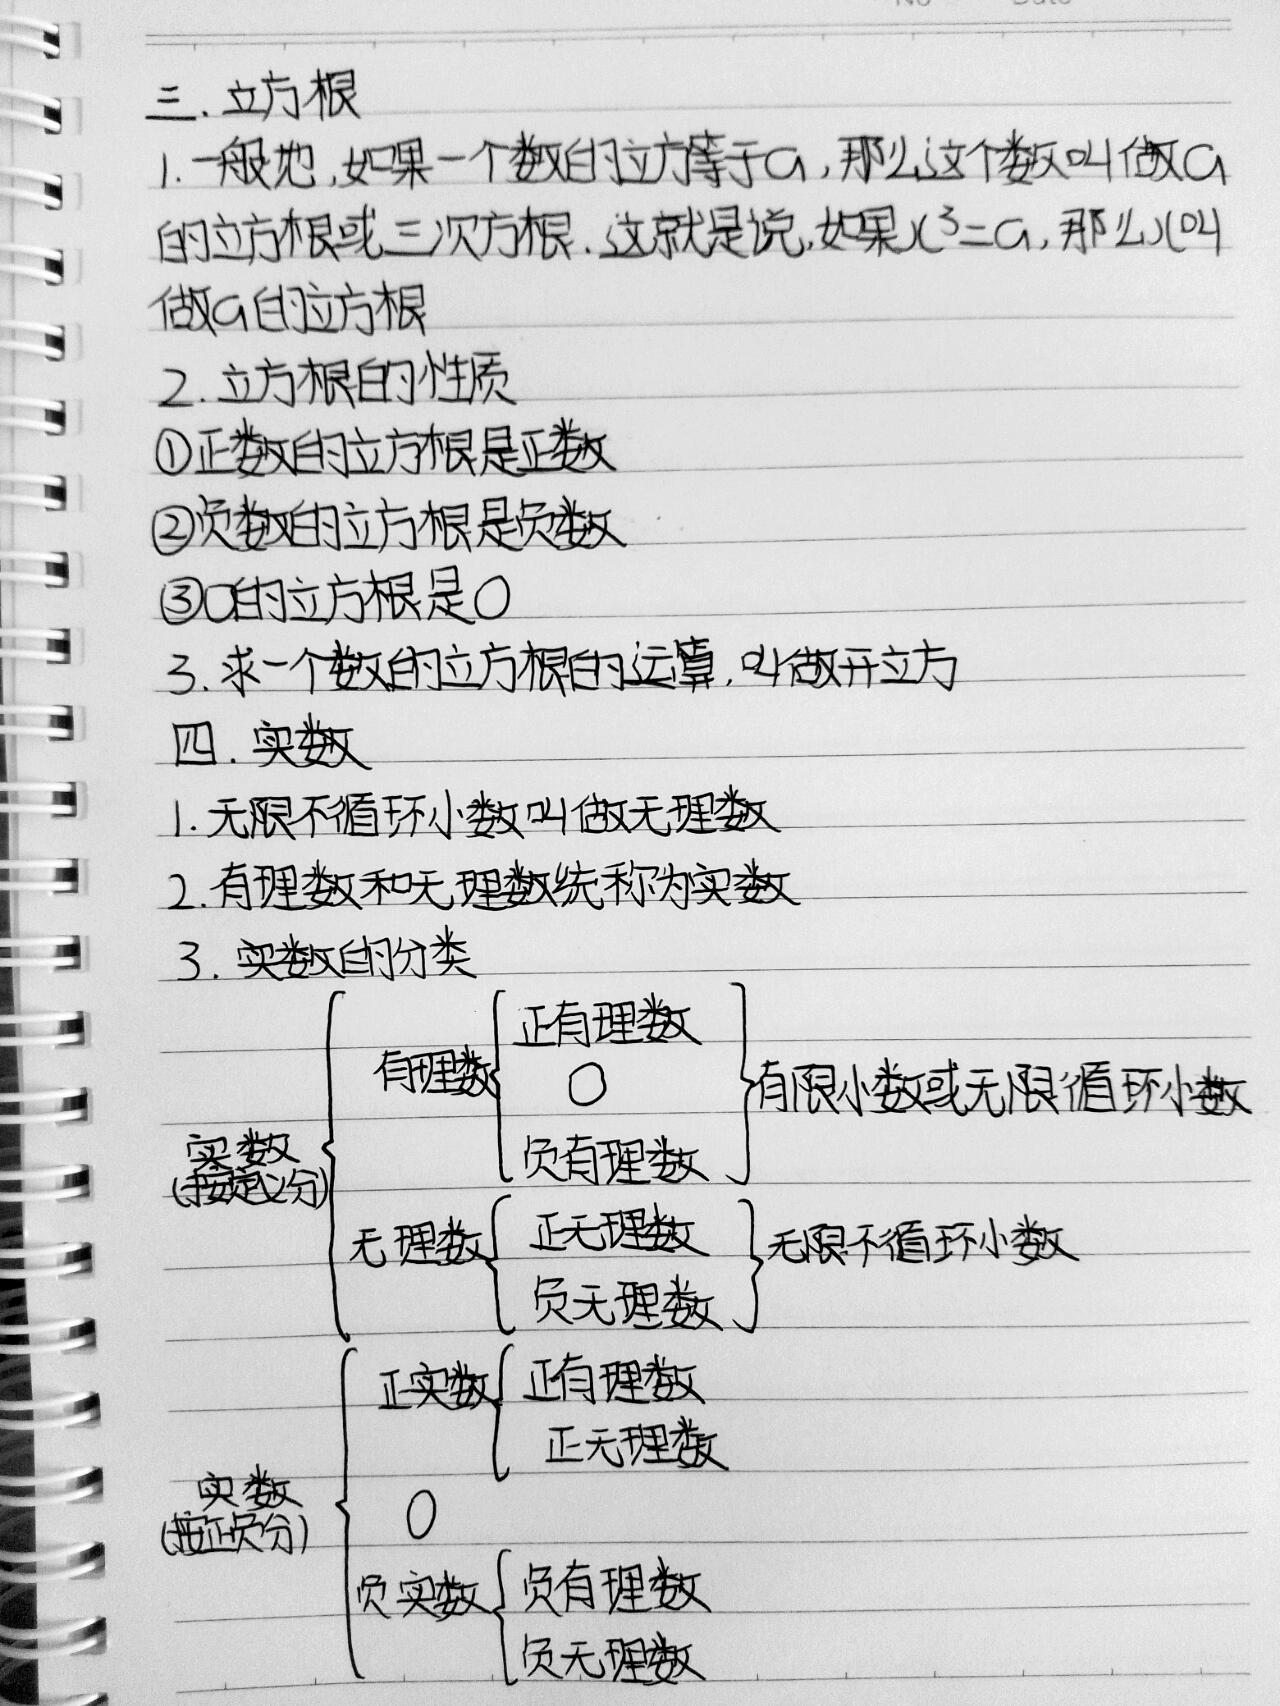 三.立方根
1.一般地,如果一个数的立方等于a,那么这个数叫做a
的立方根或三次方根.这就是说,如果x³=a,那么x叫
做a的立方根
2.立方根的性质
①正数的立方根是正数
②负数的立方根是负数
③0的立方根是0
3.求一个数的立方根的运算,叫做开立方
四.实数
1.无限不循环小数叫做无理数
2.有理数和无理数统称为实数
3.实数的分类
实数
(按定义分)
有理数
正有理数
0
负有理数
有限小数或无限循环小数
无理数
正无理数
负无理数
无限不循环小数
实数
(按正负分)
正实数
正有理数
正无理数
0
负实数
负有理数
负无理数